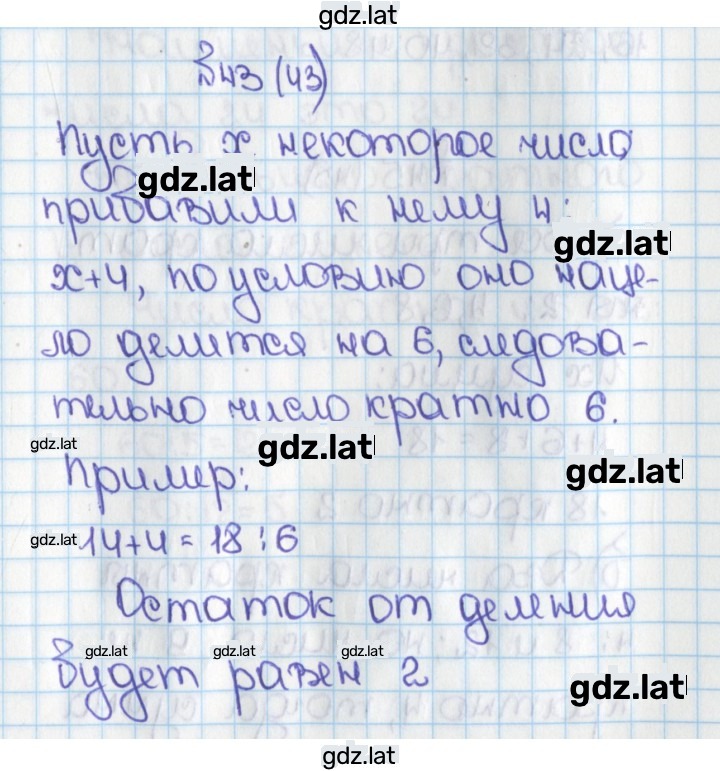 gdz.lat
№43 (43)
Пусть x некоторое число
gdz.lat
прибавили к нему 4:
gdz.lat
x+4, по условию оно наце-
ло делится на 6, следова-
тельно число кратно 6.
gdz.lat gdz.lat
Пример:
gdz.lat
gdz.lat 14+4 = 18 : 6
Остаток от деления
gdz.lat gdz.lat gdz.lat
будет равен 2
gdz.lat
gdz.lat